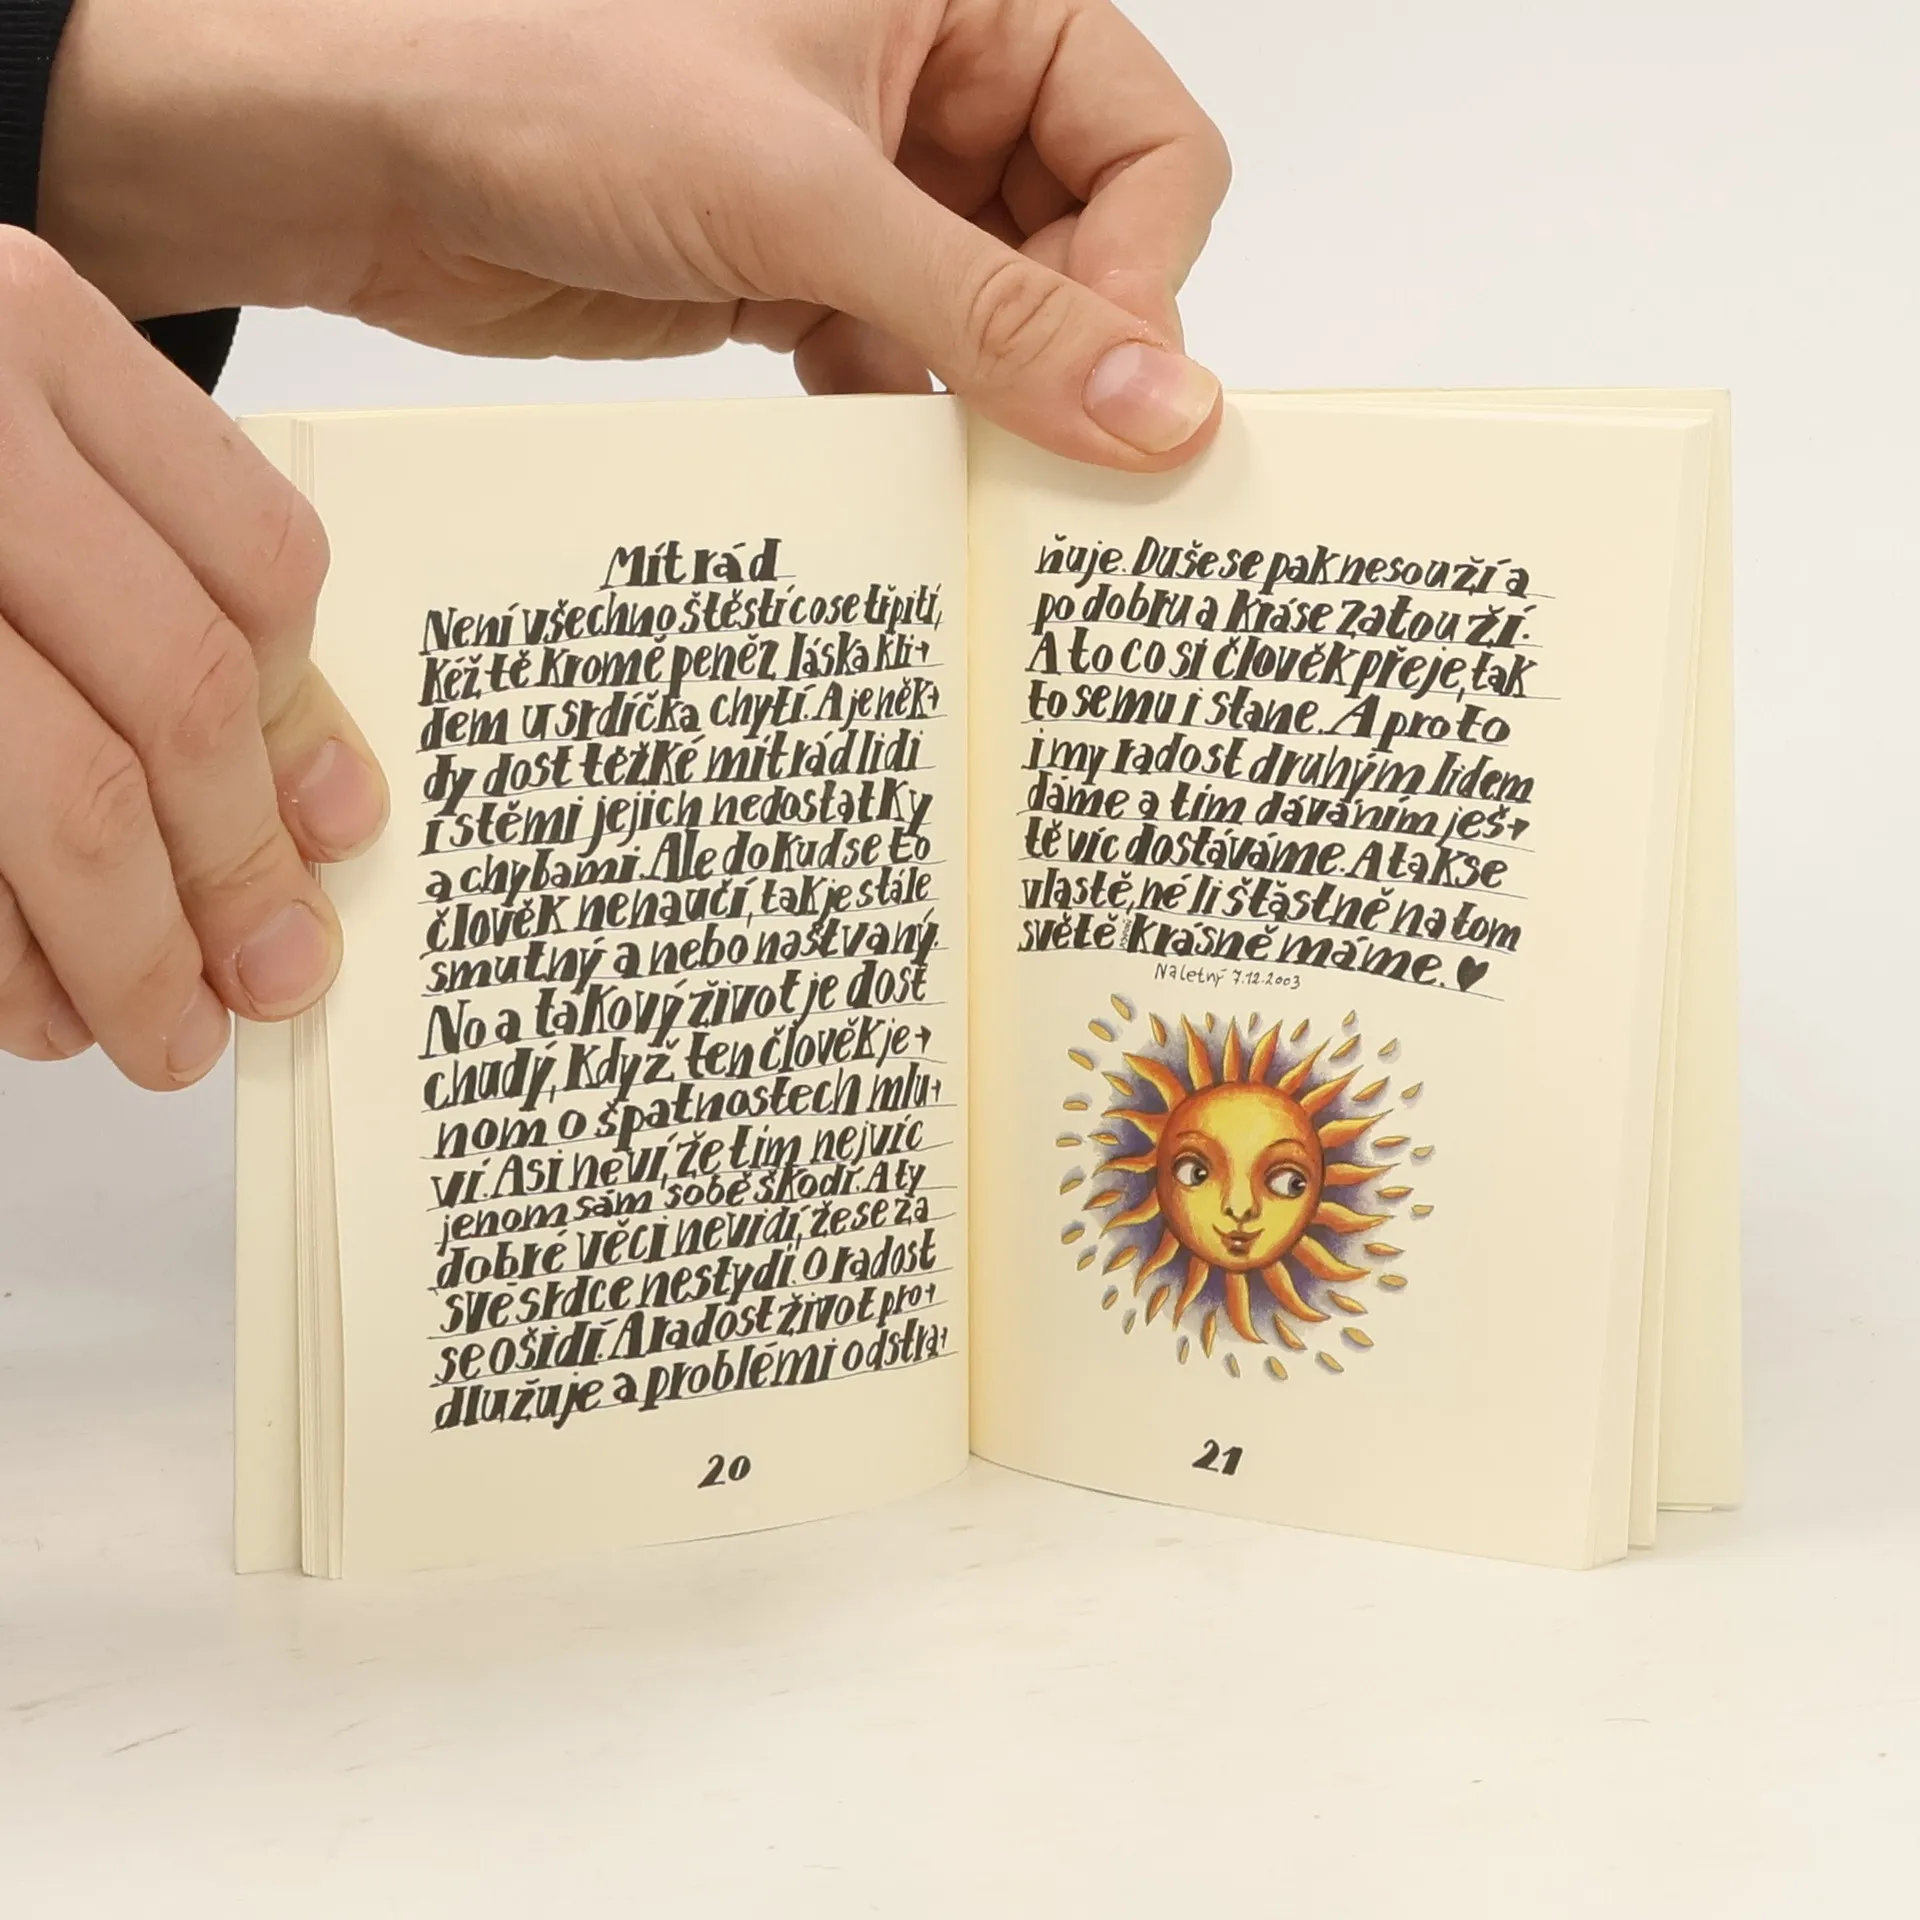 Mít rád
Není všechno štěstí co se třpití,
Kéž tě kromě peněz láska kli→
dem u srdíčka chytí. A je něk→
dy dost těžké mít rád lidi
i stěmi jejich nedostatky
a chybami. Ale dokud se to
člověk nenaučí, tak je stále
smutný a nebo naštvaný.
No a takový život je dost
chudý, Když ten člověk je→
nom o špatnostech mlu→
ví. Asi neví, že tím nejvíc
jenom sám sobě škodí. A ty
dobré věci nevidí, že se za
své srdce nestydí. O radost
se ošidí. A radost život pro→
dlužuje a problémi odstra→
20
ňuje. Duše se pak nesouží a
po dobru a kráse zatouží.
A to co si člověk přeje, tak
to se mu i stane. A proto
i my radost druhým lidem
dáme a tím dáváním ješ→
tě víc dostáváme. A tak se
vlastě, né li šťastně na tom
světě krásně máme. ♥
Naletný 7.12.2003
21